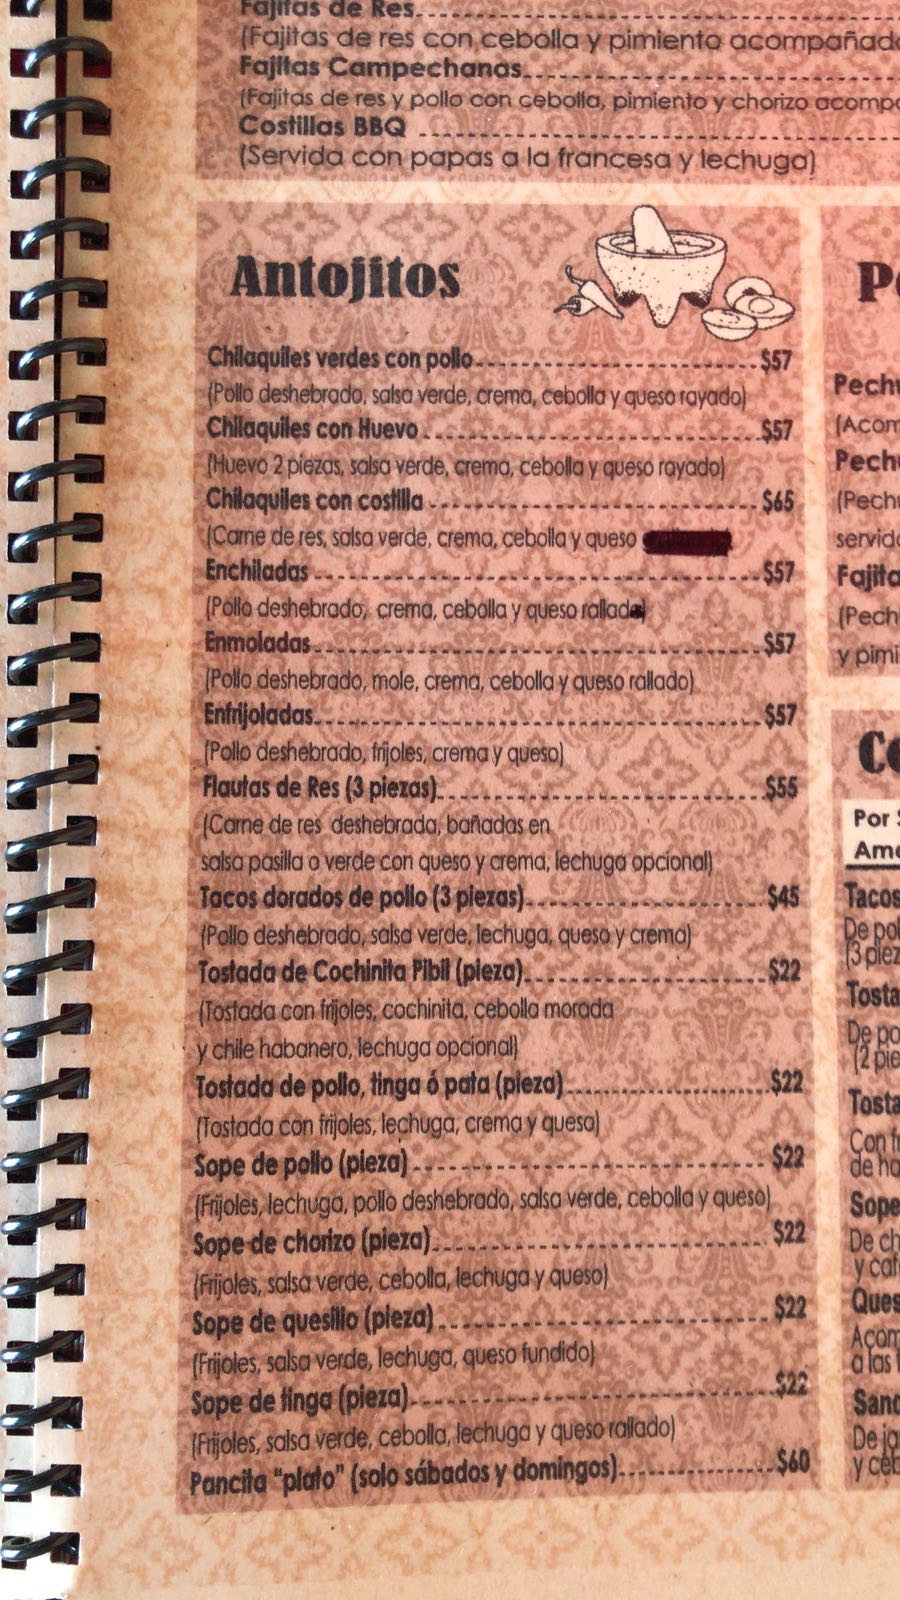 Fajitas de Res
(Fajitas de res con cebolla y pimiento acompañad
Fajitas Campechanas
(Fajitas de res y pollo con cebolla, pimiento y chorizo acomp
Costillas BBQ
(Servida con papas a la francesa y lechuga)
Antojitos
Chilaquiles verdes con pollo $57
(Pollo deshebrado, salsa verde, crema, cebolla y queso rayado)
Chilaquiles con Huevo $57
(Huevo 2 piezas, salsa verde, crema, cebolla y queso rayado)
Chilaquiles con costilla $65
(Carne de res, salsa verde, crema, cebolla y queso
Enchiladas $57
(Pollo deshebrado, crema, cebolla y queso rallado)
Enmoladas $57
(Pollo deshebrado, mole, crema, cebolla y queso rallado)
Enfrijoladas $57
(Pollo deshebrado, frijoles, crema y queso)
Flautas de Res (3 piezas) $55
(Carne de res deshebrada, bañadas en
salsa pasilla o verde con queso y crema, lechuga opcional)
Tacos dorados de pollo (3 piezas) $45
(Pollo deshebrado, salsa verde, lechuga, queso y crema)
Tostada de Cochinita Pibil (pieza) $22
(Tostada con frijoles, cochinita, cebolla morada
y chile habanero, lechuga opcional)
Tostada de pollo, tinga ó pata (pieza) $22
(Tostada con frijoles, lechuga, crema y queso)
Sope de pollo (pieza) $22
(Frijoles, lechuga, pollo deshebrado, salsa verde, cebolla y queso)
Sope de chorizo (pieza) $22
(Frijoles, salsa verde, cebolla, lechuga y queso)
Sope de quesillo (pieza) $22
(Frijoles, salsa verde, lechuga, queso fundido)
Sope de tinga (pieza) $22
(Frijoles, salsa verde, cebolla, lechuga y queso rallado)
Pancita "plato" (solo sábados y domingos) $60
Pech
(Acom
Pech
(Pech
servid
Fajita
(Pech
y pimi
Por
Ame
Tacos
De pol
(3 piez
Tosta
De po
(2 pie
Tosta
Con fr
de ha
Sope
De ch
y caf
Ques
Acom
a las
Sand
De ja
y ceb